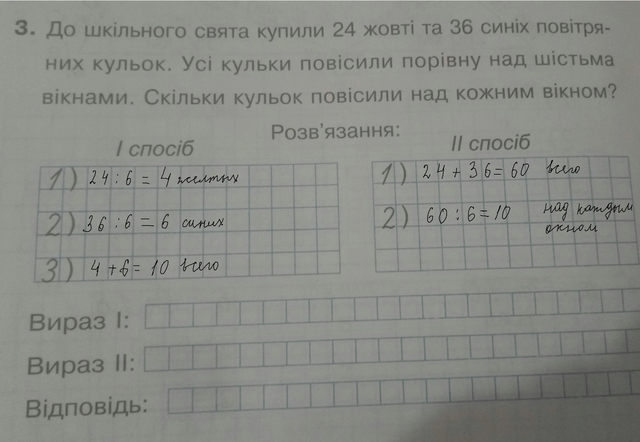 3. До шкільного свята купили 24 жовті та 36 синіх повітря-
них кульок. Усі кульки повісили порівну над шістьма
вікнами. Скільки кульок повісили над кожним вікном?
Розв'язання:
І спосіб
1) 24 : 6 = 4 желтых
2) 36 : 6 = 6 синих
3) 4 + 6 = 10 всего
ІІ спосіб
1) 24 + 36 = 60 всего
2) 60 : 6 = 10 над каждым
окном
Вираз І:
Вираз ІІ:
Відповідь: